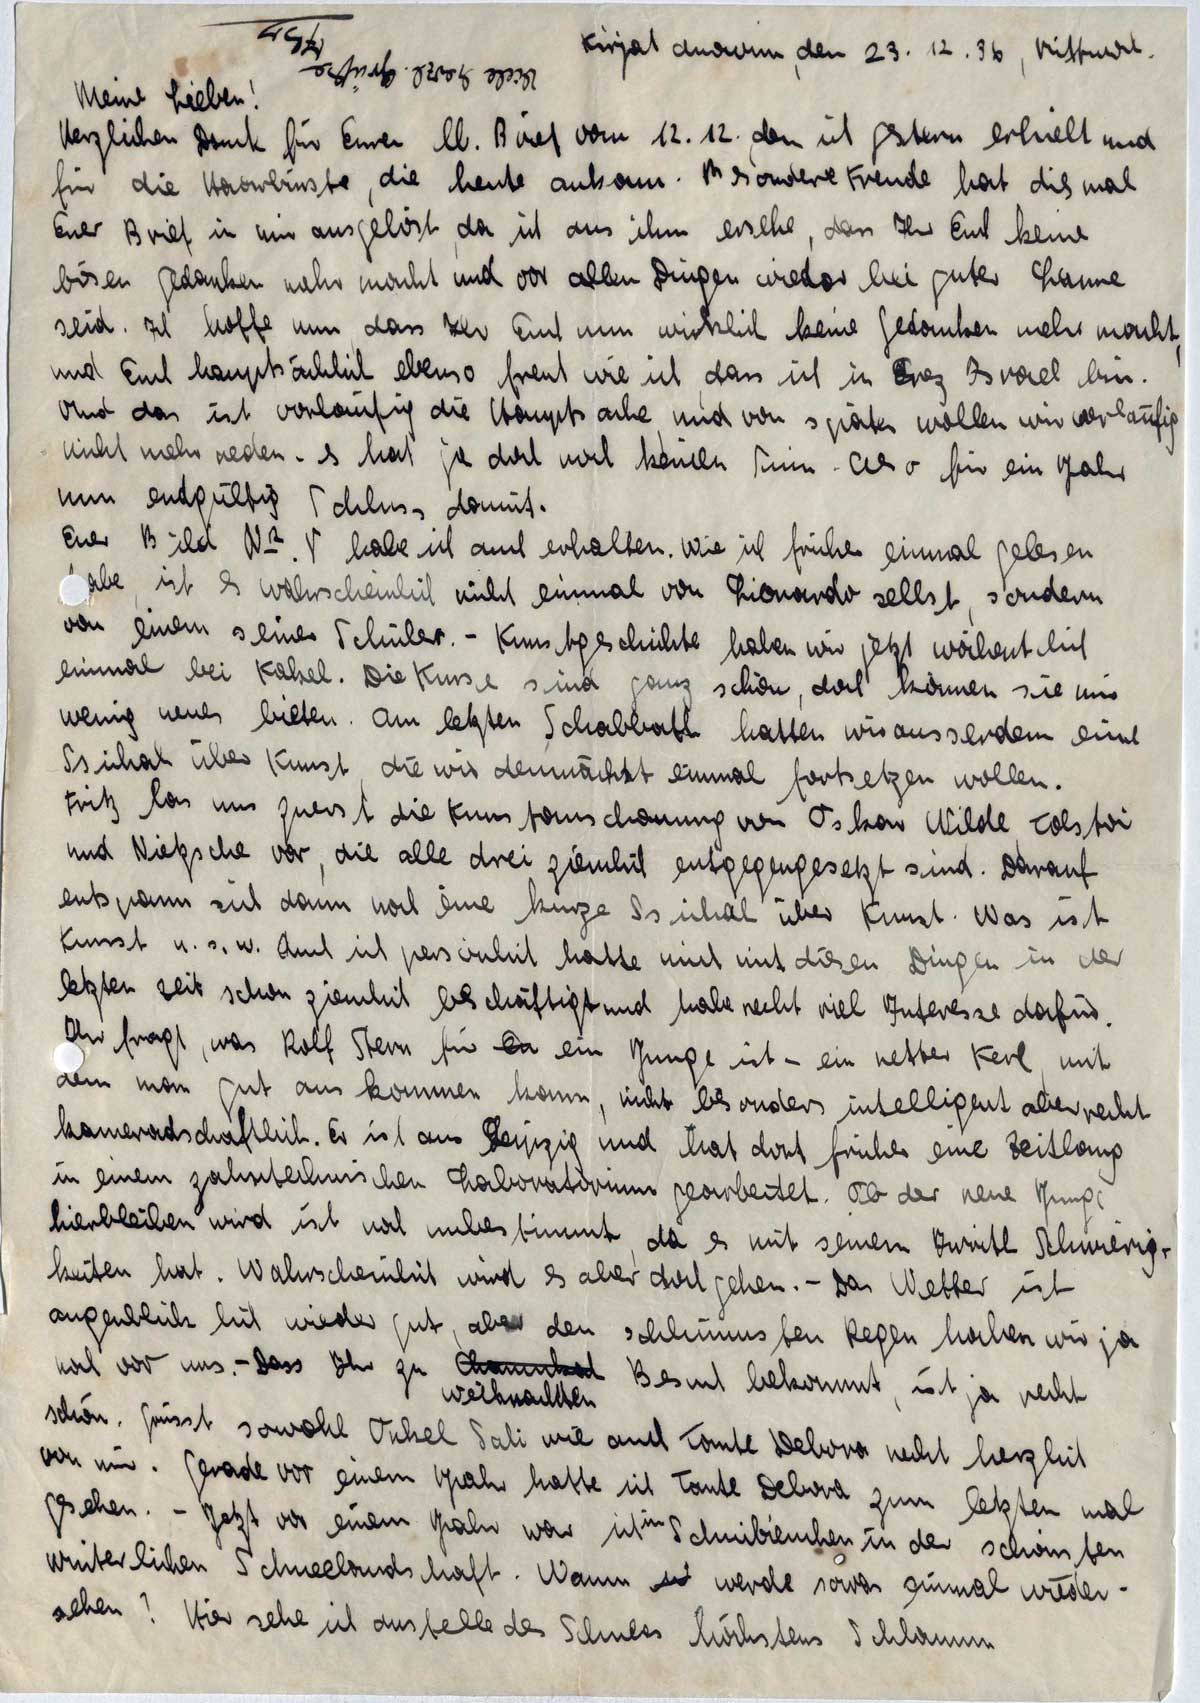 Kirjat Anavim, den 23. 12. 36, Mittwoch.
Viele herzl. Grüsse
Meine Lieben!
Herzlichen Dank für Euren lb. Brief vom 12.12. den ich gestern erhielt und
für die Haarbürste, die heute ankam. Besondere Freude hat diesmal
Euer Brief in mir ausgelöst, da ich aus ihm ersehe, dass Ihr Euch keine
bösen Gedanken mehr macht und vor allen Dingen wieder bei guter Laune
seid. Ich hoffe nun dass Ihr Euch nun wirklich keine Gedanken mehr macht,
und Euch hauptsächlich ebenso freut wie ich dass ich in Erez Israel bin.
Und das ist vorläufig die Hauptsache und von später wollen wir vorläufig
nicht mehr reden - es hat ja doch noch keinen Sinn - Also für ein Jahr
nun endgültig Schluss damit.
Euer Bild Nr. V habe ich auch erhalten. Wie ich früher einmal gelesen
habe, ist es wahrscheinlich nicht einmal von Lionardo selbst, sondern
von einem seiner Schüler. - Kunstgeschichte haben wir jetzt wöchentlich
einmal bei Kahel. Die Kurse sind ganz schön, doch können sie uns
wenig neues bieten. Am letzten Schabbath hatten wir ausserdem eine
Ssichah über Kunst, die wir demnächst einmal fortsetzen wollen.
Fritz las uns zuerst die Kunstanschauung von Oskar Wilde Tolstoi
und Nietzsche vor, die alle drei ziemlich entgegengesetzt sind. Darauf
entspann sich dann noch eine kurze Ssichah über Kunst. Was ist
Kunst u.s.w. Auch ich persönlich hatte mich mit diesen Dingen in der
letzten Zeit schon ziemlich beschäftigt und habe recht viel Interesse dafür.
Ihr fragt, was Rolf Stern für ein Junge ist - ein netter Kerl, mit
dem man gut auskommen kann, nicht besonders intelligent aber recht
kameradschaftlich. Er ist aus Leipzig und hat dort früher eine Zeitlang
in einem zahntechnischen Laboratorium gearbeitet. Ob der neue Junge
hierbleiben wird ist noch unbestimmt, da es mit seinem Iwrith Schwierig-
keiten hat. Wahrscheinlich wird es aber doch gehen. - Das Wetter ist
augenblicklich wieder gut, aber den schlimmsten Regen haben wir ja
noch vor uns. - Dass Ihr zu Weihnachten Besuch bekommt, ist ja recht
schön. Grüsst sowohl Onkel Sali wie auch Tante Debora recht herzlich
von mir. Gerade vor einem Jahr hatte ich Tante Debora zum letzten mal
gesehen. - Jetzt vor einem Jahr war ich in Schnibienchen in der schönsten
winterlichen Schneelandschaft. Wann werde sowas einmal wieder-
sehen? Hier sehe ich anstelle des Schnees höchstens Schlamm